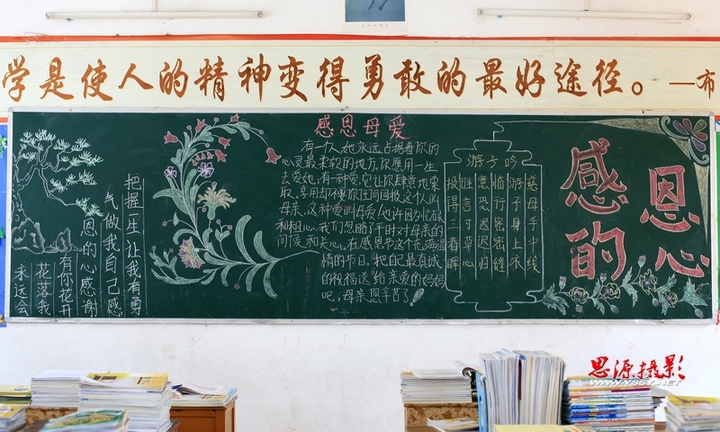 学是使人的精神变得勇敢的最好途径。—布
把握一生 让我有勇
气做我自己 感
恩的心 感谢
有你 花开
花落 我
永远会
感恩母爱
有一个人,她永远占据着你的
心灵最柔软的地方,你愿用一生
去爱她;有一种爱,它让你肆意地索
取、享用,却不要你任何回报,这个人叫
母亲,这种爱叫母爱!也许因为忙碌
和粗心,我们忽略了平时对母亲的
问候和关心,在感恩节这个充满温
情的节日,把最真诚
的祝福送给亲爱的妈妈
吧,母亲,您辛苦了!
游子吟
慈母手中线
游子身上衣
临行密密缝
意恐迟迟归
谁言寸草心
报得三春晖
感恩的心
思源摄影